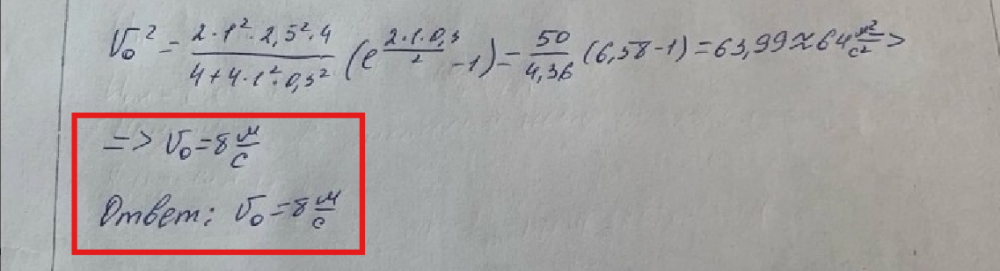 V₀² = (2·1²·2,5²·4)/(4+4·1²·0,3²) (e^(2·1·0,3/2) - 1) = 50/4,36 (6,58-1) = 63,99 ≈ 64 м²/с² >
=> V₀ = 8 м/с
Ответ: V₀ = 8 м/с